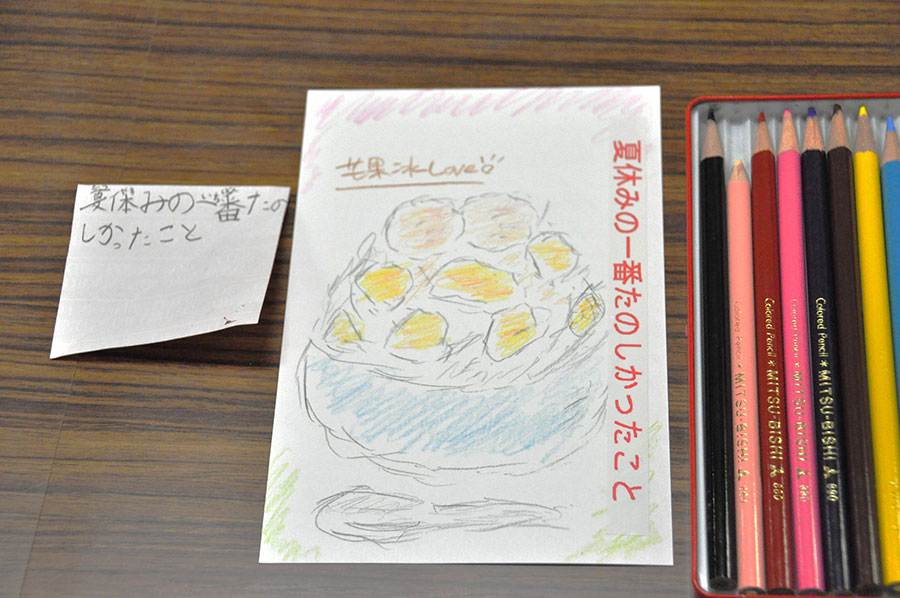 夏休みの一番たの
しかったこと
芒果冰Love
夏休みの一番たのしかったこと
Colored Pencil ✶ MITSU-BISHI 880
Colored Pencil ✶ MITSU-BISHI 880
Colored Pencil ✶ MITSU-BISHI 880
Colored Pencil ✶ MITSU-BISHI 880